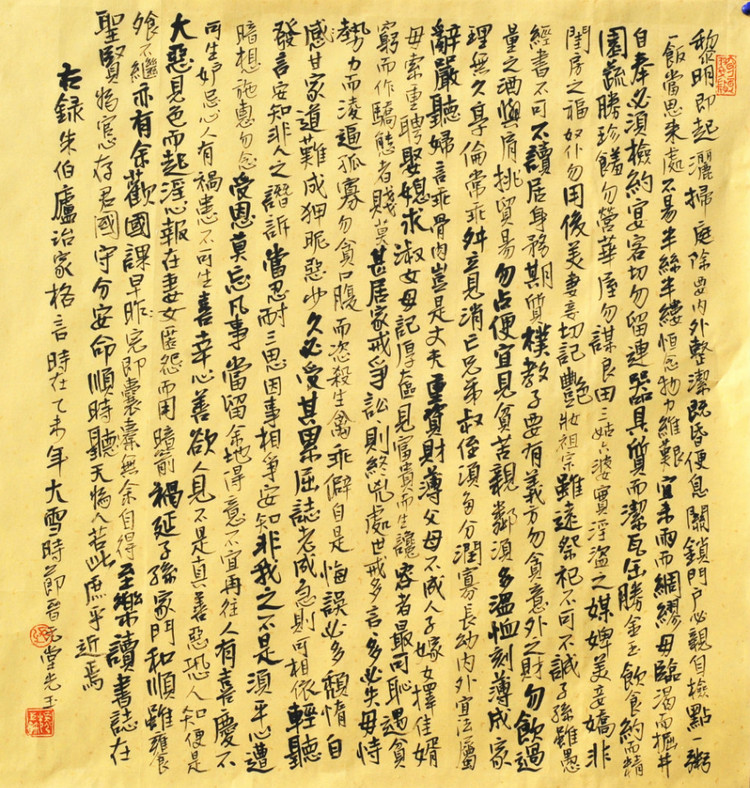 黎明即起灑掃庭除要內外整潔既昏便息關鎖門戶必親自檢點一粥
一飯當思來處不易半絲半縷恒念物力維艱宜未雨而綢繆毋臨渴而掘井
自奉必須檢約宴客切勿留連器具質而潔瓦缶勝金玉飲食約而精
園蔬勝珍饈勿營華屋勿謀良田三姑六婆實淫盜之媒婢美妾嬌非
閨房之福奴仆勿用俊美妻妾切記艷妝祖宗雖遠祭祀不可不誠子孫雖愚
經書不可不讀居身務期質樸教子要有義方勿貪意外之財勿飲過
量之酒與肩挑貿易勿占便宜見貧苦親鄰須多溫恤刻薄成家
理無久享倫常乖舛立見消亡兄弟叔侄須多分潤寡長幼內外宜法屬
辭嚴聽婦言乖骨肉豈是丈夫重資財薄父母不成人子嫁女擇佳婿
毋索重聘娶媳求淑女毋記厚奩見富貴而生讒容者最可恥遇貧
窮而作驕態者賤莫甚居家戒爭訟則終兇處世戒多言多必失毋恃
勢力而淩逼孤寡勿貪口腹而恣殺生禽乖僻自是悔誤必多頹惰自
感甘家道難成狎昵惡少久必受其累屈誌老成急則可相依輕聽
發言安知非人之譖訴當忍耐三思因事相爭安知非我之不是須平心遭
暗想施惠勿念受恩莫忘凡事當留余地得意不宜再往人有喜慶不
可生妒忌心人有禍患不可生喜幸心善欲人見不是真善惡恐人知便是
大惡見色而起淫心報在妻女匿怨而用暗箭禍延子孫家門和順雖饔
飧不繼亦有余歡國課早昨完即囊橐無余自得至樂讀書誌在
聖賢為官心存君國守分安命順時聽天為人若此庶乎近焉
右錄朱伯廬治家格言時在乙未年大雪時節晉元堂先玉